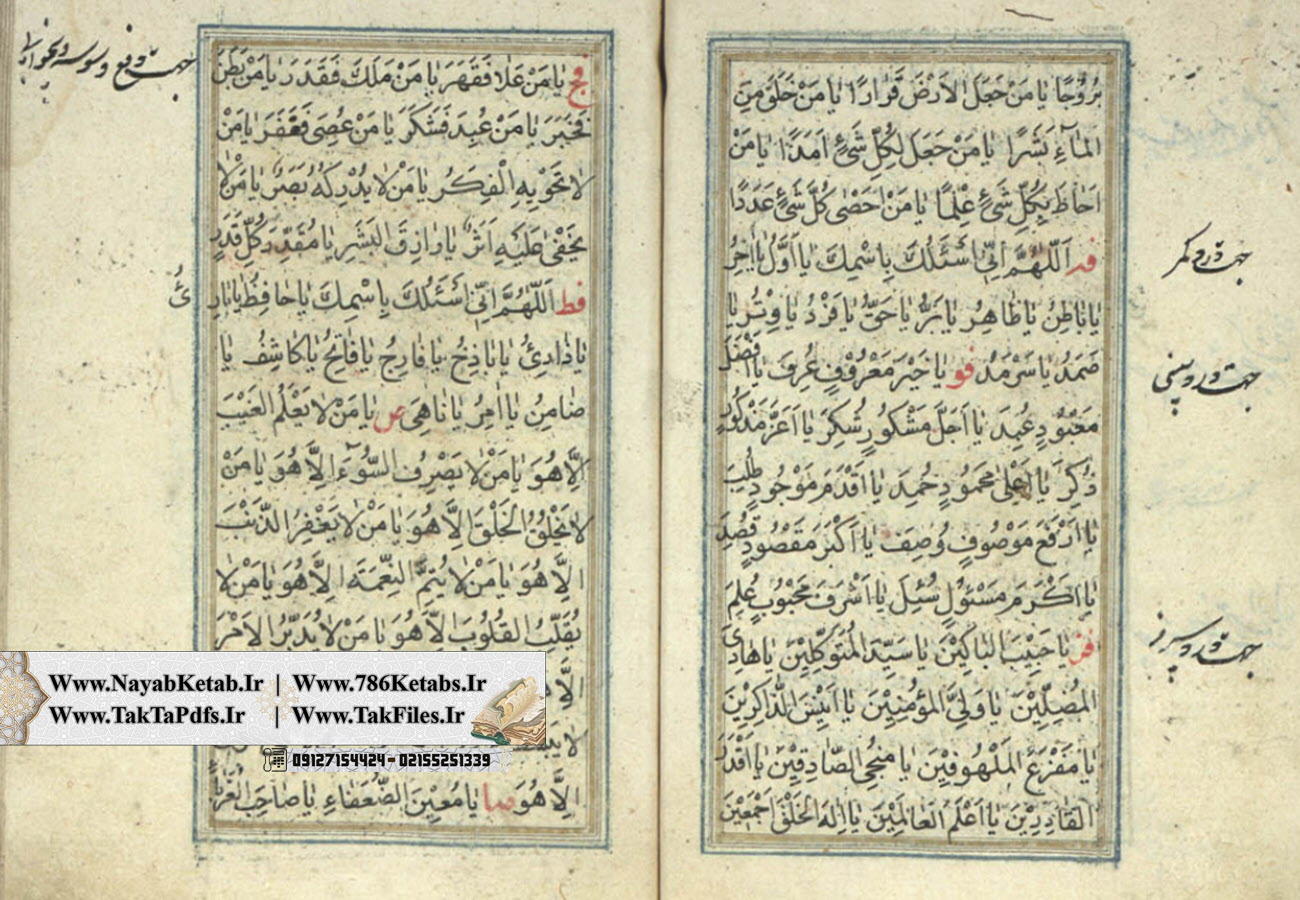 بُرُوجًا يَا مَنْ جَعَلَ الْاَرْضَ قَرَارًا يَا مَنْ خَلَقَ مِنَ
الْمَاءِ بَشَرًا يَا مَنْ جَعَلَ لِكُلِّ شَيْءٍ اَمَدًا يَا مَنْ
اَحَاطَ بِكُلِّ شَيْءٍ عِلْمًا يَا مَنْ اَحْصٰى كُلَّ شَيْءٍ عَدَدًا
فه اَللّٰهُمَّ اِنّٖى اَسْئَلُكَ بِاسْمِكَ يَا اَوَّلُ يَا اٰخِرُ
يَا بَاطِنُ يَا ظَاهِرُ يَا بَرُّ يَا حَقُّ يَا فَرْدُ يَا وِتْرُ يَا
صَمَدُ يَا سَرْمَدُ فو يَا خَيْرَ مَعْرُوفٍ عُرِفَ يَا اَفْضَلَ
مَعْبُودٍ عُبِدَ يَا اَجَلَّ مَشْكُورٍ شُكِرَ يَا اَعَزَّ مَذْكُورٍ
ذُكِرَ يَا اَعْلٰى مَحْمُودٍ حُمِدَ يَا اَقْدَمَ مَوْجُودٍ طُلِبَ
يَا اَرْفَعَ مَوْصُوفٍ وُصِفَ يَا اَكْبَرَ مَقْصُودٍ قُصِدَ
يَا اَكْرَمَ مَسْئُولٍ سُئِلَ يَا اَشْرَفَ مَحْبُوبٍ عُلِمَ
فز يَا حَبِيبَ الْبَاكِينَ يَا سَيِّدَ الْمُتَوَكِّلِينَ يَا هَادِىَ
الْمُضِلِّينَ يَا وَلِىَّ الْمُؤْمِنِينَ يَا اَنِيسَ الذَّاكِرِينَ
يَا مَفْزَعَ الْمَلْهُوفِينَ يَا مُنْجِىَ الصَّادِقِينَ يَا اَقْدَرَ
الْقَادِرِينَ يَا اَعْلَمَ الْعَالَمِينَ يَا اِلٰهَ الْخَلْقِ اَجْمَعِينَ
جهة درد كمر
جهة درد
جهة درد سپرز
فح يَا مَنْ عَلَا فَقَهَرَ يَا مَنْ مَلَكَ فَقَدَرَ يَا مَنْ بَطَنَ
فَخَبَرَ يَا مَنْ عُبِدَ فَشَكَرَ يَا مَنْ عُصِىَ فَغَفَرَ يَا مَنْ
لَا تَحْوِيهِ الْفِكَرُ يَا مَنْ لَا يُدْرِكُهُ بَصَرٌ يَا مَنْ لَا
يَخْفٰى عَلَيْهِ اَثَرٌ يَا رَازِقَ الْبَشَرِ يَا مُقَدِّرَ كُلِّ قَدَرٍ
فط اَللّٰهُمَّ اِنّٖى اَسْئَلُكَ بِاسْمِكَ يَا حَافِظُ يَا بَارِ
ئُ
يَا ذَارِئُ يَا بَاذِخُ يَا فَارِجُ يَا فَاتِحُ يَا كَاشِفُ يَا
ضَامِنُ يَا اٰمِرُ يَا نَاهِى ص يَا مَنْ لَا يَعْلَمُ الْغَيْبَ
اِلَّا هُوَ يَا مَنْ لَا يَصْرِفُ السُّوءَ اِلَّا هُوَ يَا مَنْ
لَا يَخْلُقُ الْخَلْقَ اِلَّا هُوَ يَا مَنْ لَا يَغْفِرُ الذَّنْبَ
اِلَّا هُوَ يَا مَنْ لَا يُتِمُّ النِّعْمَةَ اِلَّا هُوَ يَا مَنْ لَا
يُقَلِّبُ الْقُلُوبَ اِلَّا هُوَ يَا مَنْ لَا يُدَبِّرُ الْاَمْرَ
اِلَّا
اِلَّا هُوَ صا يَا مُعِينَ الضُّعَفَاءِ يَا صَاحِبَ الْغُرَبَاءِ
جهة دفع وسوسه
Www.NayabKetab.Ir | Www.786Ketabs.Ir
Www.TakTaPdfs.Ir | Www.TakFiles.Ir
09127154424 - 02155251339